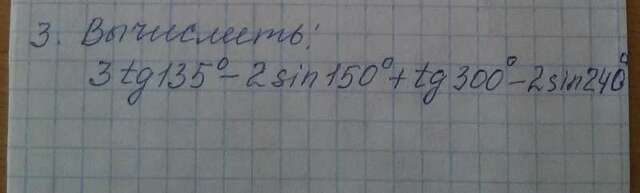 3. Вычислить:
3tg135° - 2sin150° + tg300° - 2sin240°